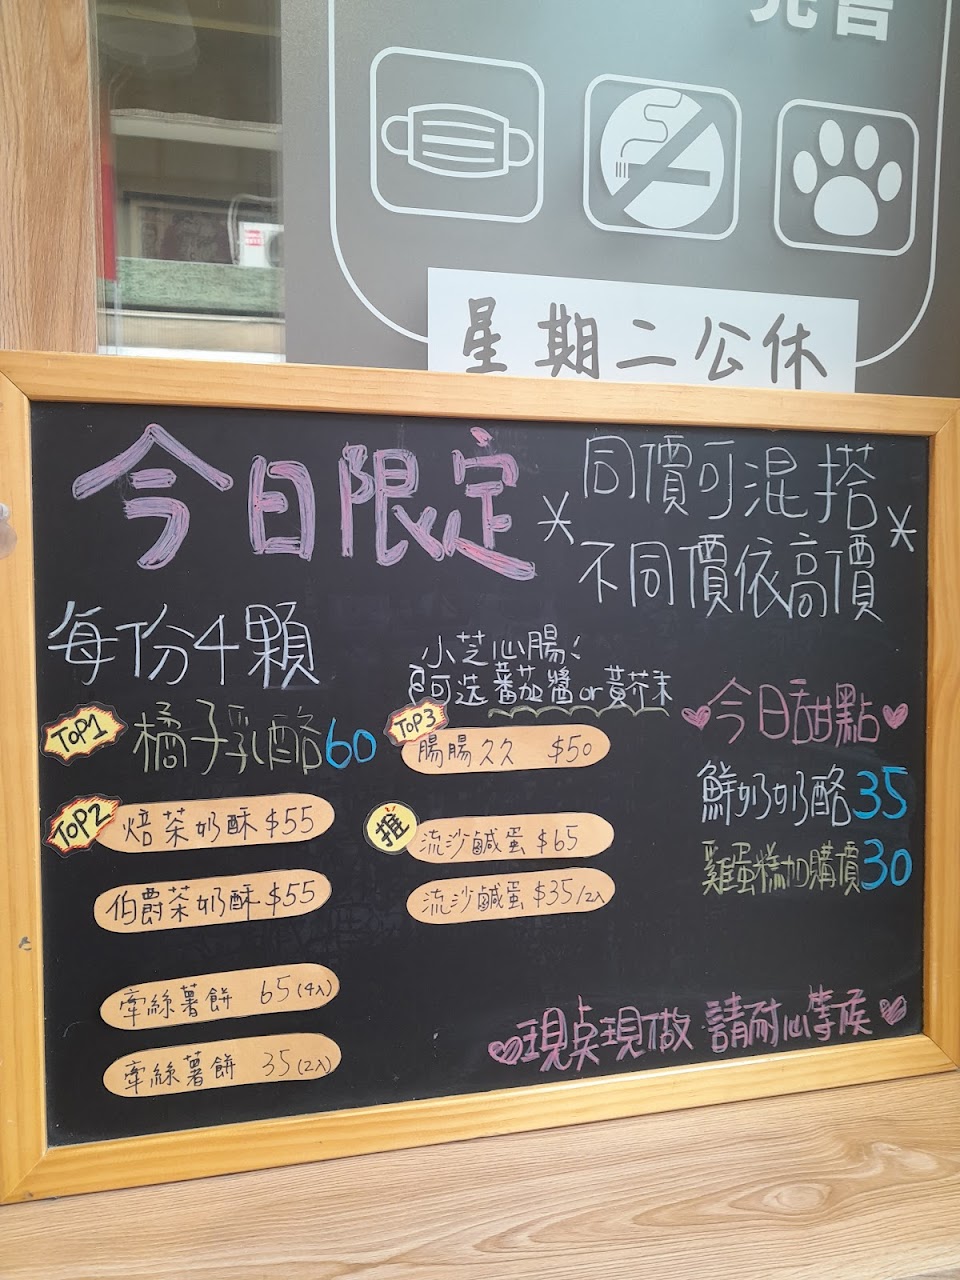 星期二公休
今日限定
*同價可混搭*
不同價依高價
每份4顆
TOP1 橘子乳酪60
TOP2 焙茶奶酥 $55
伯爵茶奶酥 $55
牽絲薯餅 65(4入)
牽絲薯餅 35(2入)
小芝心腸!
可选蕃茄醬or黃芥末
TOP3 腸腸久久 $50
推 流沙鹹蛋 $65
流沙鹹蛋 $35/2入
今日甜點
鮮奶奶酪35
雞蛋糕加購價30
現點現做 請耐心等候